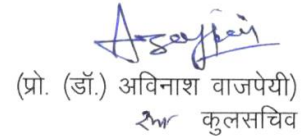 (प्रो. (डॉ.) अविनाश वाजपेयी)
कुलसचिव